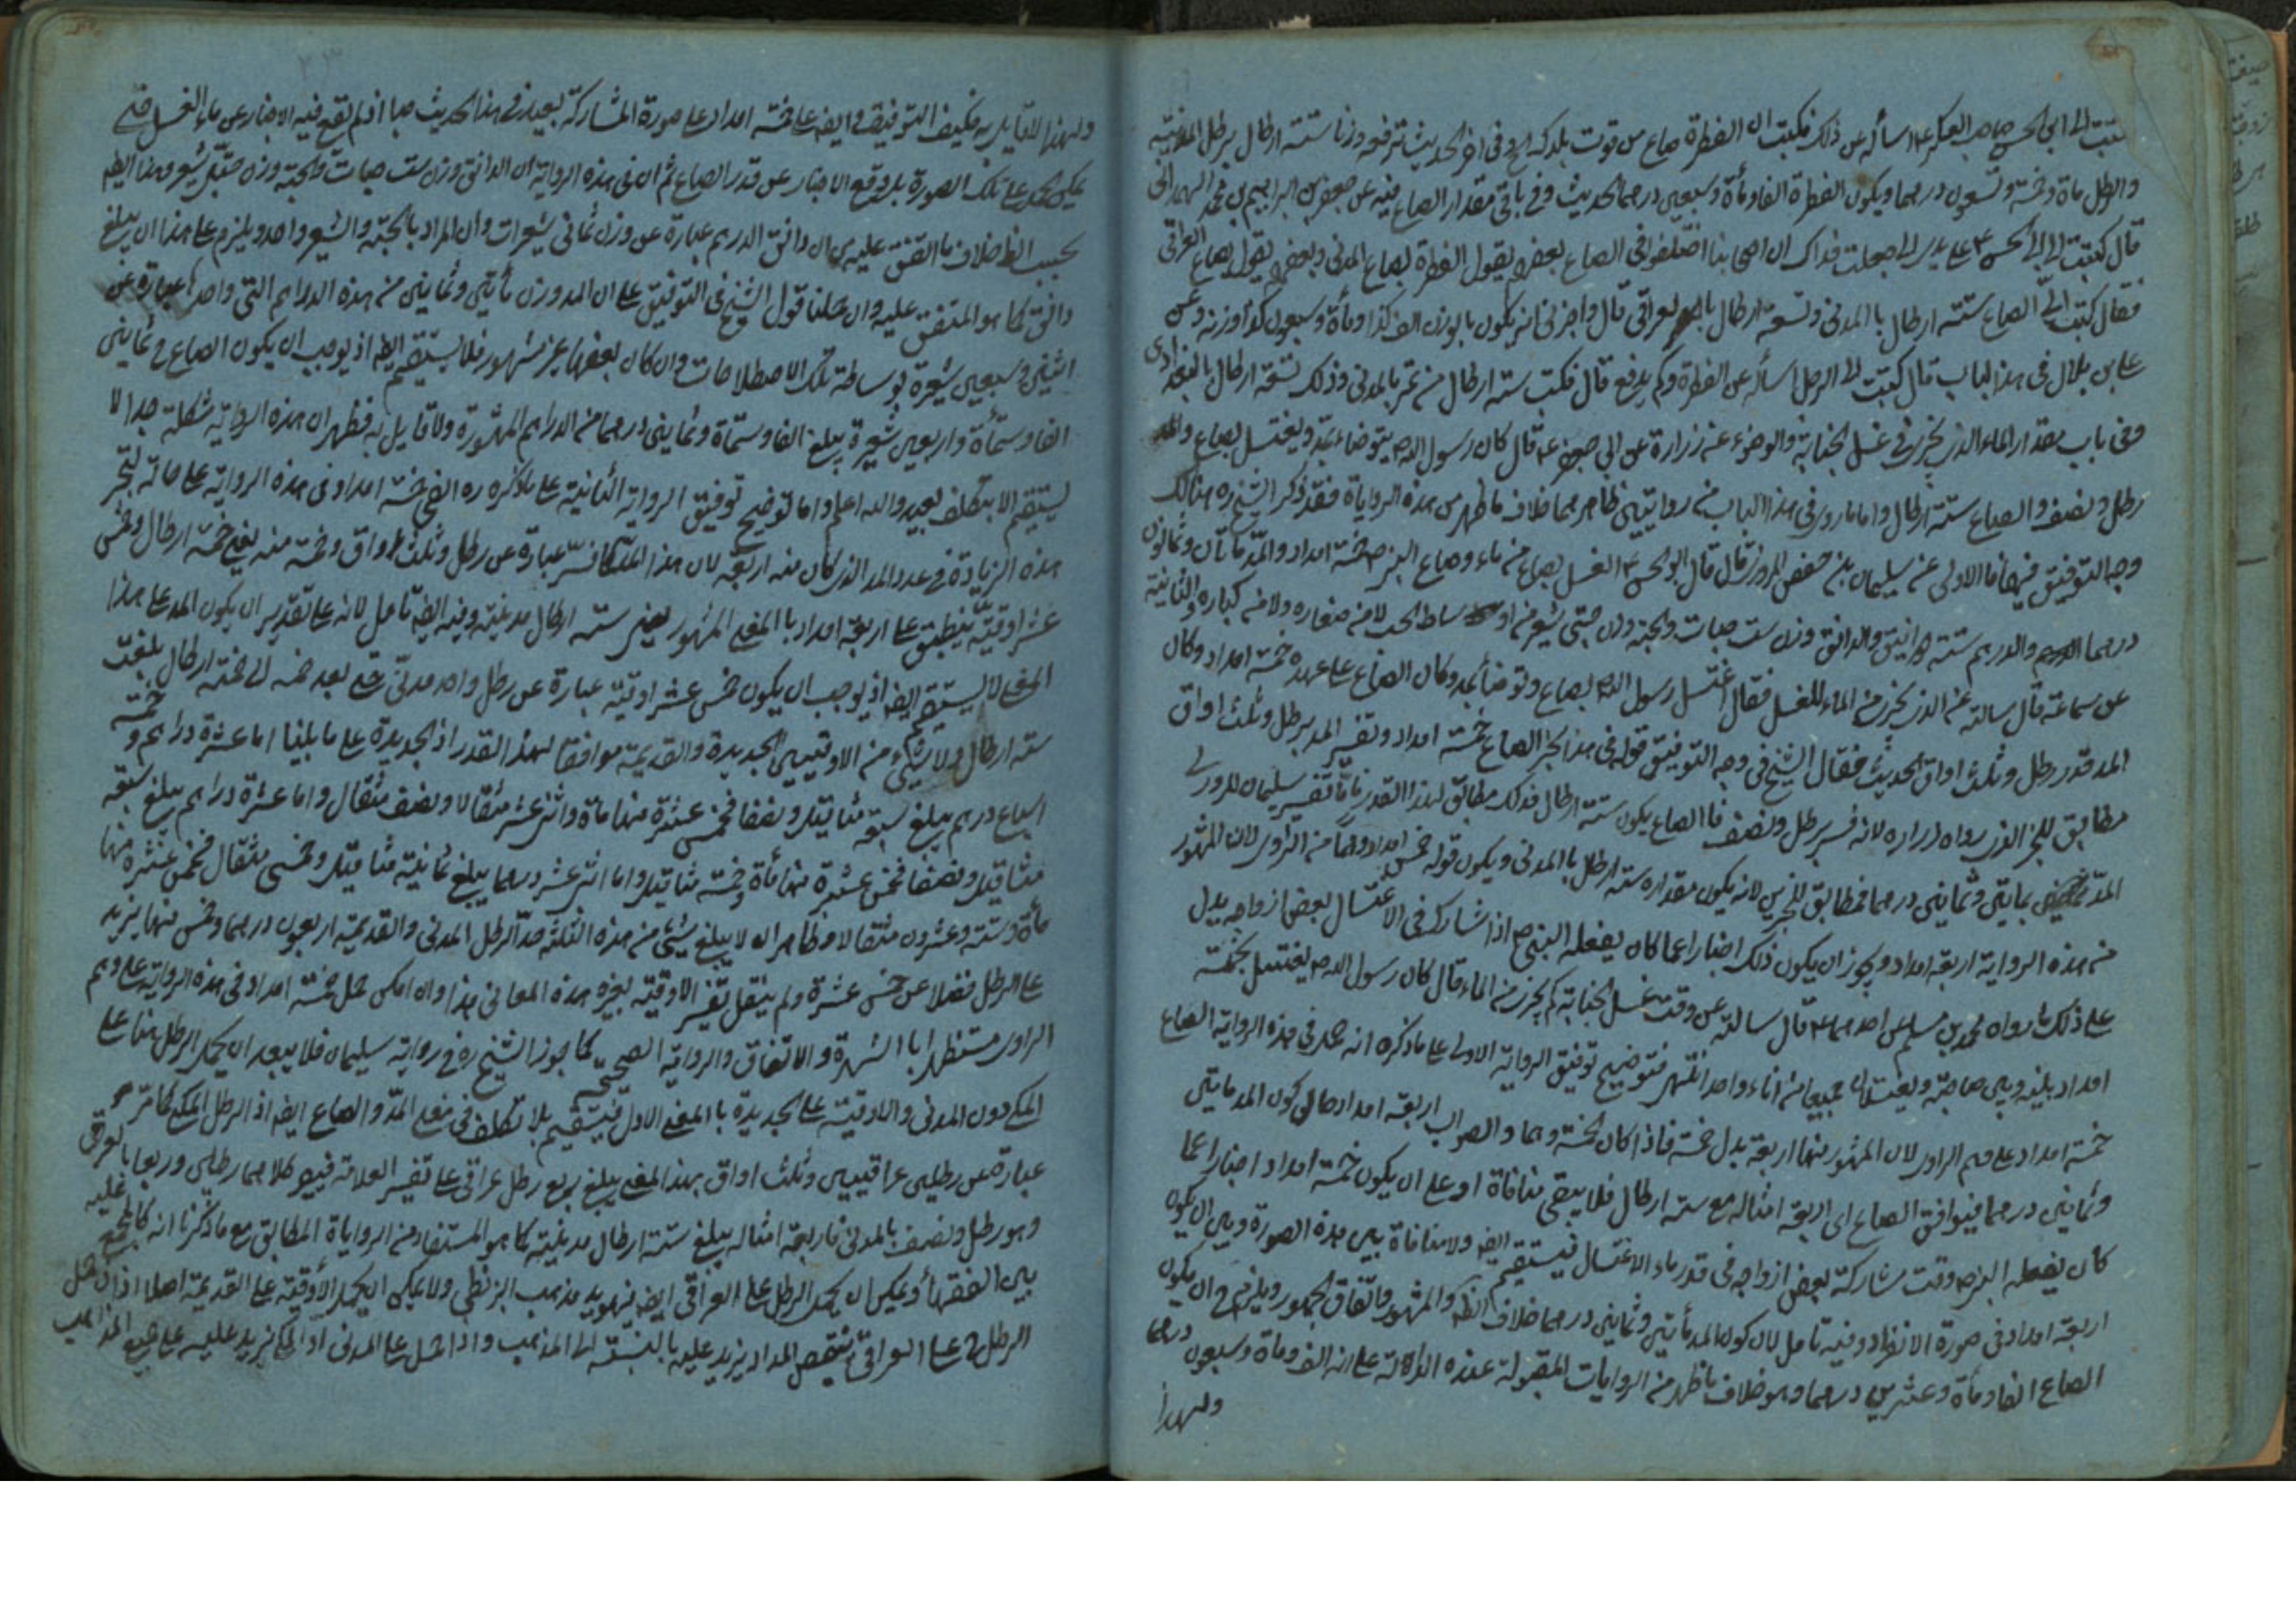 كتبت الى ابي الحسن صاحب العسكر ع اسأله عن ذلك فكتب ان الفطرة صاع من قوت بلدك الخ وفي اخر الحديث ترفعه وزنا ستة ارطال برطل المدينة
والرطل مأة وخمسة وتسعون درهما ويكون الفطرة الفا ومأة وسبعين درهما الحديث وفي باقي مقدار الصاع فيه عن جعفر بن ابراهيم بن محمد الهمداني
قال كتبت الى ابي الحسن ع على يدي ابي جعلت فداك ان اصحابنا اختلفوا في الصاع بعضهم يقول الفطرة بصاع المدني وبعضهم يقول بصاع العراقي
فقال كتب اليّ الصاع ستة ارطال بالمدني وتسعة ارطال بالعراقي قال واخبرني انه يكون بالوزن الف كذا ومأة وسبعون كذا وزنه وعن
علي بن بلال في هذا الباب قال كتبت الى الرجل اسأله عن الفطرة وكم يدفع قال فكتب ستة ارطال من تمر بالمدني وذلك تسعة ارطال بالبغدادي
وفي باب مقدار الماء الذي يجزي في غسل الجنابة والوضوء عنه زرارة عن ابي جعفر ع قال كان رسول الله ص يتوضاء بمد ويغتسل بصاع والمد
رطل ونصف والصاع ستة ارطال واما ما ورد في هذا الباب من روايتين ظاهرهما خلاف ما ظهر من هذه الرواياة فقد ذكر الشيخ ره هنالك
وجه التوفيق فيهما فالاولى عن سليمان بن حفص المروزي قال قال ابو الحسن ع الغسل بصاع من ماء وصاع النبي ص خمسة امداد والمد مأتان وثمانون
درهما والدرهم ستة دوانيق والدانق وزن ست حبات والحبة وزن حبتي شعير من اوساط الحب لا من صغاره ولا من كباره والثانية
عن سماعة قال سالته عن الذي يجزي من الماء للغسل فقال اغتسل رسول الله ص بصاع وتوضأ بمد وكان الصاع على عهده خمسة امداد وكان
المد قدر رطل وثلث اواق الحديث فقال الشيخ في وجه التوفيق قوله في هذا الخبر الصاع خمسة امداد وتفسير المد برطل وثلث اواق
مطابق للخبر الذي رواه زرارة لانه فسر برطل ونصف فالصاع يكون ستة ارطال فذلك مطابق لهذا القدر فاما تفسير سليمان المروزي
المد بمأتين وثمانين درهما فمطابق للخبرين لانه يكون مقداره ستة ارطال بالمدني ويكون قوله خمس امداد وهما من الراوي لان المشهور
من هذه الرواية اربعة امداد ويجوز ان يكون ذلك اخبارا عما كان يفعله النبي ص اذا شارك في الاغتسال بعض ازواجه يدل
على ذلك ما رواه محمد بن مسلم عن احدهما ع قال سالته عن وقت غسل الجنابة كم يجزي من الماء قال كان رسول الله ص يغتسل بخمسة
امداد بينه وبين صاحبته ويغتسلان جميعا من اناء واحد انتهى فتوضيح توفيق الرواية الاولى على ما ذكره انه حمل في هذه الرواية الصاع
خمسة امداد على وهم الراوي لان المشهور منها اربعة بدل خمسة فاذا كان الخمسة وهما والصواب اربعة امداد صار كون المد مأتين
وثمانين درهما فيوافق الصاع اي اربعة امثاله مع ستة ارطال فلا يبقى منافاة او على ان يكون خمسة امداد اخبارا عما
كان يفعله النبي ص وقت مشاركة بعض ازواجه في قدر ماء الاغتسال فيستقيم ايضا ولا منافاة بين هذه الصورة وبين ان يكون
اربعة امداد في صورة الانفراد وفيه تامل لان كون المد مأتين وثمانين درهما خلاف الظه والمشهور واتفاق الجمهور ويلزم ح ان يكون
الصاع الفا ومأة وعشرين درهما وهو خلاف ما ظهر من الروايات المقبولة عنده الدالة على انه الف ومأة وسبعون درهما
ولهذا
ولهذا لا قايل به فكيف التوفيق وايضا على خمسة امداد على صورة المشاركة بعيد في هذا الحديث جدا اذ لم يقع فيه الاخبار عن ماء الغسل حتى
يمكن الحمل على تلك الصورة بل وقع الاخبار عن قدر الصاع ثم ان في هذه الرواية ان الدانق وزن ست حبات والحبة وزن حبتي شعير وهذا ايضا
بحسب الظ خلاف ما اتفق عليه من ان دانق الدرهم عبارة عن وزن ثماني شعيرات وان المراد بالحبة والشعير واحد ويلزم على هذا ان يبلغ
دانق كما هو المتفق عليه وان حملنا قول الشيخ في التوفيق على ان المد وزن مأتين وثمانين من هذه الدراهم التي واحدها عبارة عن
اثنين وسبعين شعيرة بوساطة تلك الاصطلاحات وان كان بعضها غير مشهور فلا يستقيم ايضا اذ يوجب ان يكون الصاع ح ثمانين
الفا وستمأة واربعين شعيرة يبلغ الفا وستمأة وثمانين درهما من الدراهم المشهورة ولا قايل به فظهر ان هذه الرواية مشكلة جدا لا
يستقيم الا بتكلف بعيد والله اعلم واما توضيح توفيق الرواية الثانية على ما ذكره ره الخ خمسة امداد في هذه الرواية على حاله لتجبر
هذه الزيادة في عدد المد الذي كان منه اربعة لان هذا المد كما فسر عبارة عن رطل وثلث اواق وخمسة منه يعني خمسة ارطال وخمس
عشر اوقية ينطبق على اربعة امداد بالمعنى المشهور يعني ستة ارطال مدنية وفيه ايضا تامل لانه على تقدير ان يكون المد على هذا
المعنى لا يستقيم ايضا اذ يوجب ان يكون خمس عشر اوقية عبارة عن رطل واحد مدني حتى بعد ضمه الى خمسة ارطال يبلغ
ستة ارطال ولا شيء من الاوقيتين الجديدة والقديمة موافقا لهذا القدر اذ الجديدة على ما بلغنا اما عشرة دراهم وخمسة
اسباع درهم يبلغ سبعة مثاقيل ونصفا فخمس عشرة منها مأة واثنى عشر مثقالا ونصف مثقال واما عشرة دراهم يبلغ سبعة
مثاقيل فخمس عشرة منها مأة وخمسة مثاقيل واما اثنى عشر درهما يبلغ ثمانية مثاقيل وخمسي مثقال فخمس عشرة منها
مأة وستة وعشرون مثقالا وظاهر انه لا يبلغ شيء من هذه الثلثة حد الرطل المدني والقديمة اربعون درهما وخمس منها يزيد
على الرطل فضلا عن خمس عشرة ولم ينقل تفسير الاوقية بغير هذه المعاني هذا وان امكن حمل خمسة امداد في هذه الرواية على وهم
الراوي مستظهرا بالشهرة والاتفاق والرواية الصحيحة كما جوز الشيخ ره في رواية سليمان فلا يبعد ان يحمل الرطل هنا على
المكي دون المدني والاوقية على الجديدة بالمعنى الاول فيستقيم بلا تكلف في معنى المد والصاع ايضا اذ الرطل المكي كما مر
عبارة عن رطلين عراقيين وثلث اواق بهذا المعنى يبلغ ربع رطل عراقي على تفسير العلامة فيصير كلاهما رطلين وربعا بالعراقي
وهو رطل ونصف بالمدني فاربعة امثاله يبلغ ستة ارطال مدنية كما هو المستفاد من الرواياة المطابق مع ما ذكرنا انه كالمجمع عليه
بين الفقهاء ويمكن ان يحمل الرطل على العراقي ايضا فيؤيد مذهب البزنطي ولا يمكن ان يحمل الاوقية على القديمة اصلا اذ ان حمل
الرطل ح على العراقي ينقص المد او يزيد عليه بالنسبة الى المذهب واذا حمل على المدني او المكي يزيد عليه على جميع المذاهب